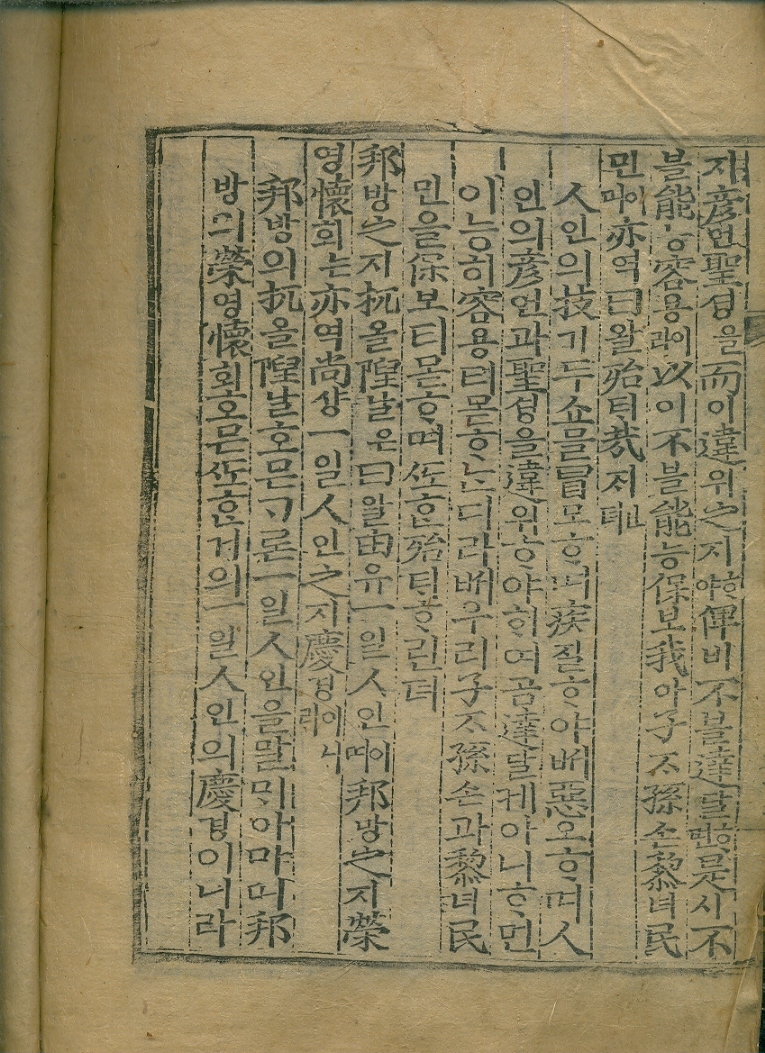 지彦언聖셩을而이違위之지ᄒᆞ야俾비不블達달ᄒᆞ면是시不
블能능容용이라以이不블能능保보我아子ᄌᆞ孫손黎려民
민이며亦역曰왈殆ᄐᆡ哉ᄌᆡ뎌
人인의技기두쇼믈冒모ᄒᆞ며疾질ᄒᆞ야ᄡᅥ惡오ᄒᆞ며人
인의彦언과聖셩을違위ᄒᆞ야ᄒᆞ여곰達달케아니ᄒᆞ면
이능히容용티몯ᄒᆞᄂᆞᆫ디라ᄡᅥ우리子ᄌᆞ孫손과黎려民
민을保보티몯ᄒᆞ며ᄯᅩᄒᆞᆫ殆ᄐᆡᄒᆞ린뎌
邦방之지杌올隉날은曰왈由유一일人인이며邦방之지榮
영懷회ᄂᆞᆫ亦역尙샹一일人인之지慶경이니라
邦방의杌올隉날호믄ᄀᆞᆯ論一일人인을말ᄆᆡ아마며邦
방의榮영懷회호믄ᄯᅩᄒᆞᆫ거의一일人인의慶경이니라